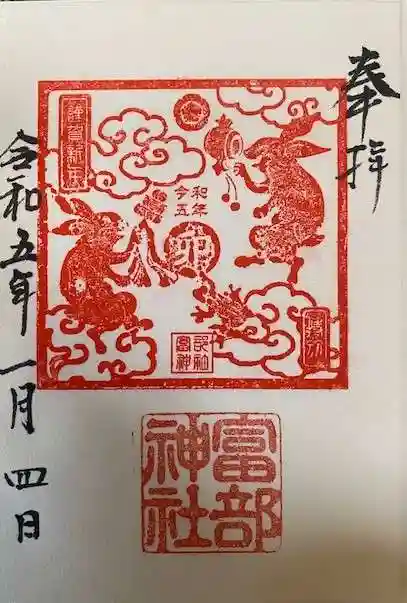 奉拝
謹賀新年
令和
五年
卯
富部
神社
富部
神社
令和五年一月四日